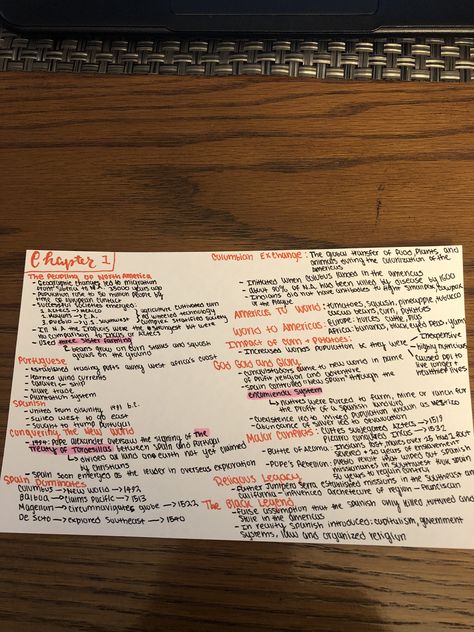 Chapter 1
The Peopling of North America
- Geographic changes led to migration
from Siberia to N.A. 35000 years ago
- Population rose to 50 million people by
time of European contact
- Successful societies emerged:
1. Aztecs → Mexico
2. Mayans → C.A.
3. Pueblo → U.S. Southwest
agriculture cultivated corn
advanced technology
complex stratified society
- In N.A the Iroquois were the strongest but were
no comparison to Incas or Aztecs
- Used three sister farming
↳ beans grow on corn stalks and squash
grows on the ground
Portuguese
- Established trading posts along west africa's coast
- learned wind currents
- caravel ship
- slave trade
- Plantation system
Spanish
- United from disunity
- sailed west to go east
- sought to outdo Portugal
Conquering The New World
- 1494: Pope Alexander oversaw the signing of The
Treaty of Tordesillas between Spain and Portugal
↳ divided all land on earth not yet claimed
by christians
- Spain soon emerged as the leader in overseas exploration
Spain Dominates
Columbus → New World → 1492
Balboa → claims Pacific → 1513
Magellan → circumnavigates globe → 1522
De Soto → explored Southeast → 1540
Columbian Exchange: The global transfer of food, plants, and
animals during the colonization of the
americas
- Initiated when Columbus landed in the americas
- about 90% of N.A. had been killed by disease by 1600
- Indians did not have immunities to fight smallpox,
or the plague
Americas To World: tomatoes, squash, pineapple, tobacco
beans, corn, potatoes
World to Americas: Europe: horses, cattle, pigs
Africa: bananas, black eyed peas, yams
Impact of corn + Potatoes:
- Increased world's population bc they were
inexpensive
highly nutritious
caused ppl to
live longer +
healthier lives
God Gold and Glory
- conquistadors came to new world in name
of profit, religion and adventure
- Spain controlled New Spain through the
encomienda system
↳ natives were forced to farm, mine or ranch for
the profit of a spanish landlord
- Coexistence led to mixed population known as mestizo
- abundance of silver led to devaluation
Major Conflicts: - Cortes subjugated Aztecs → 1519
- Pizarro conquered Incas → 1532
- Battle of Acoma:
- Pope's Rebellion: Pueblo revolt that wiped out spanish
missionaries in southwest
Religious Legacy
- Father Junipero Serra established missions in the southwest
california - influenced architecture of region - Franciscan
The Black Legend
- False assumption that the spanish only killed, tortured and
stole in the americas
- In reality spanish introduced: capitalism, government
systems, law and organized religion